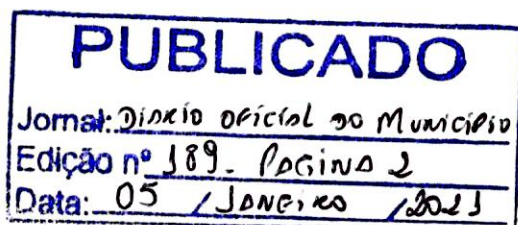 PUBLICADO
Jornal: DIÁRIO OFICIAL DO MUNICÍPIO
Edição nº 189. PAGINA 2
Data: 05 / JANEIRO / 2021